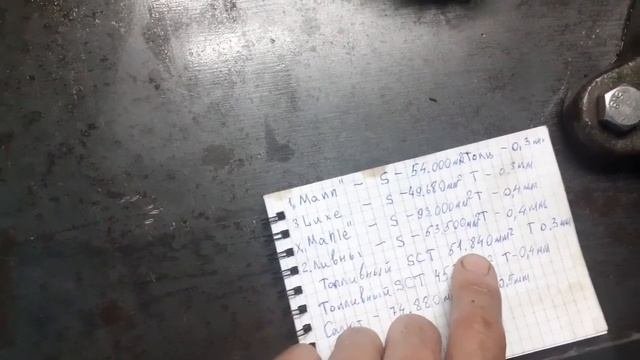 1. "Mann" - S - 54.000 мм² Толщ - 0,3 мм.
3. Luxe - S - 49.680 мм² Т - 0.3 мм
X. Mahle - S - 93.000 мм² Т - 0,4 мм
2. Ливны - S - 53.500 мм² Т - 0,4 мм.
Топливный SCT 51.840 мм² Т 0.3 мм
Топливный SCT 45 Т - 0,4 мм
74.880 0,5 мм